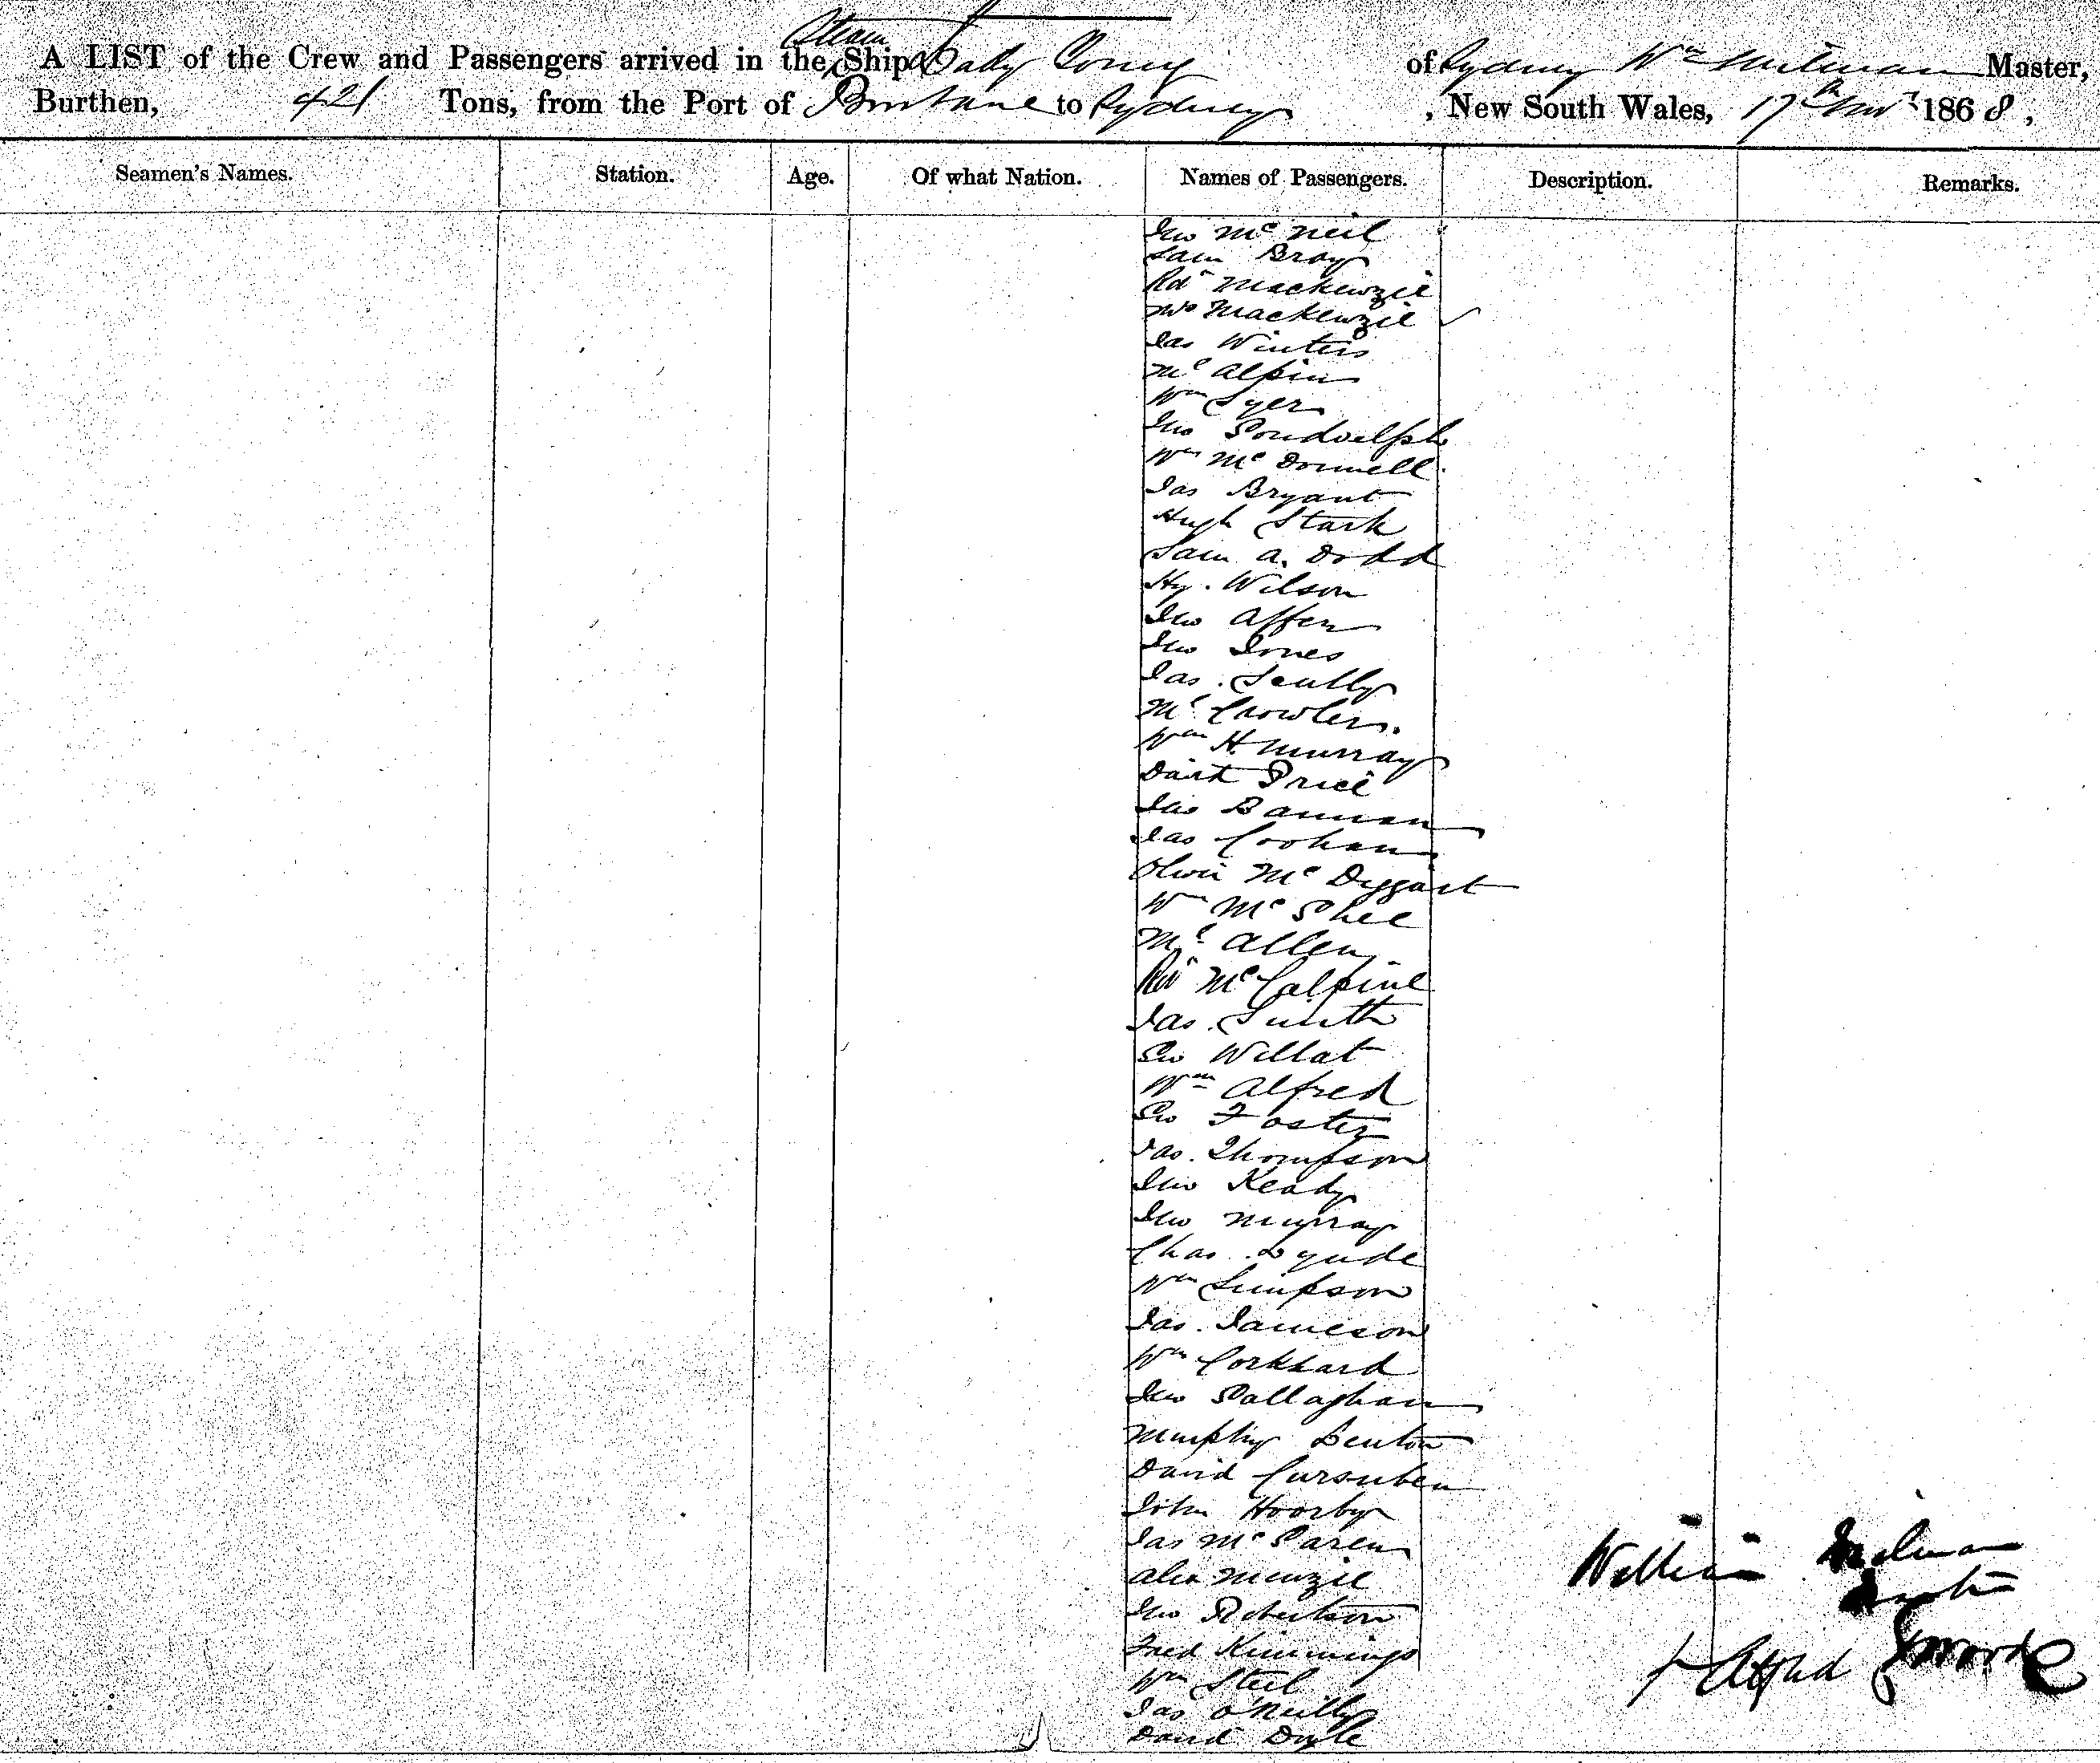 A LIST of the Crew and Passengers arrived in the Steam Ship Lady Young of Sydney Wm Master,
Burthen, 421 Tons, from the Port of Brisbane to Sydney, New South Wales, 17th Novr 1868,
Seamen's Names. Station. Age. Of what Nation. Names of Passengers. Description. Remarks.
Jno McNeil
Sam Bray
Rd Mackenzie
Mackenzie
Jas Winters
Mc Alpin
Wm Syer
Jno
Wm McDonnell
Jas Bryant
Hugh Stark
Sam A. Dodd
Hy. Wilson
Jno Affer
Jno Jones
Jas. Scully
Ml Crowley
Wm H. Murray
Davd Price
Jas Bannan
Jas Coohan
McDygart
Wm McPhee
Ml Allen
McCalpine
Jas. Smith
Geo Willat
Wm Alfred
Geo Foster
Jas. Thompson
Jno Keady
Jno Murray
Chas. Lynde
Wm Simpson
Jas. Jameson
Wm Corkhard
Jno Callaghan
Murphy Benton
David
John Hoorby
Jas McLaren
Alex Menzie
Jno Robertson
Fred Kimmings
Wm Steil
Jas O'Neilly
David Doyle
William
Master
Alfred